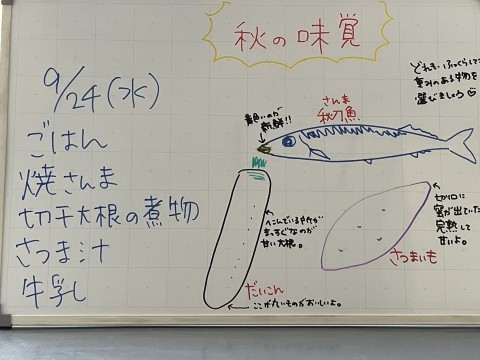 秋の味覚
9/24(水)
ごはん
焼さんま
切干大根の煮物
さつま汁
牛乳
黄色いのが
新鮮!!
さんま
秋刀魚
どれも、ふっくらして
重みのある物を
選びましょう
へこんでいる
まっすぐなのが
甘い大根。
だいこん
ここが丸いものがおいしいよ。
切り口に
蜜が出ていたら
完熟して
甘いよ。
さつまいも